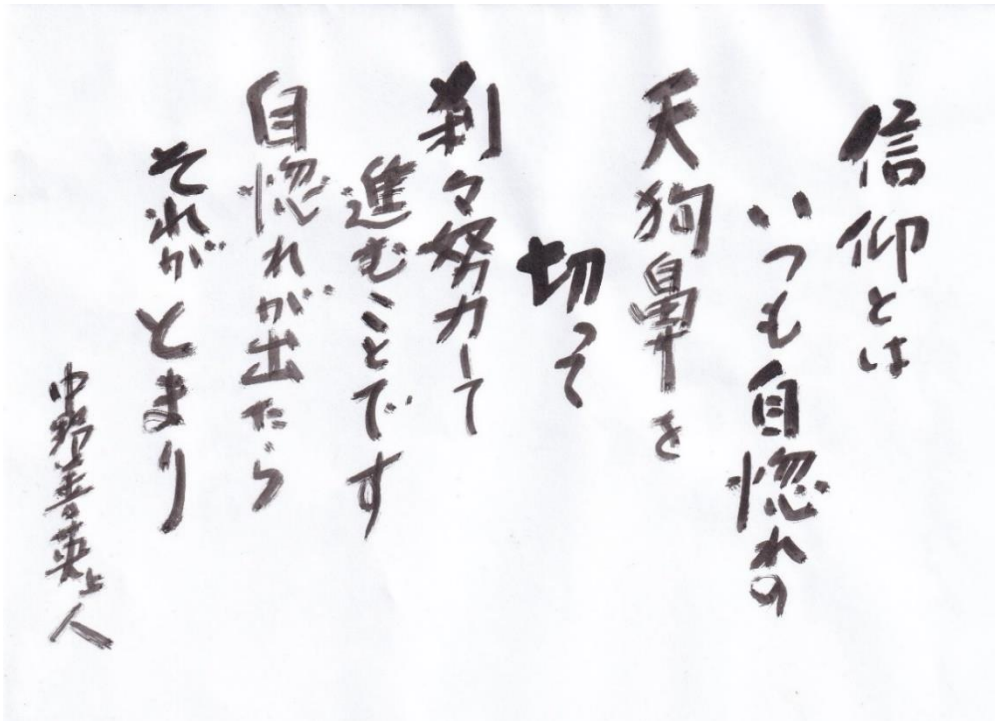 信仰とは
いつも自惚れの
天狗鼻を
切って
刹々努力して
進むことです
自惚れが出たら
それがとまり
中野善英上人